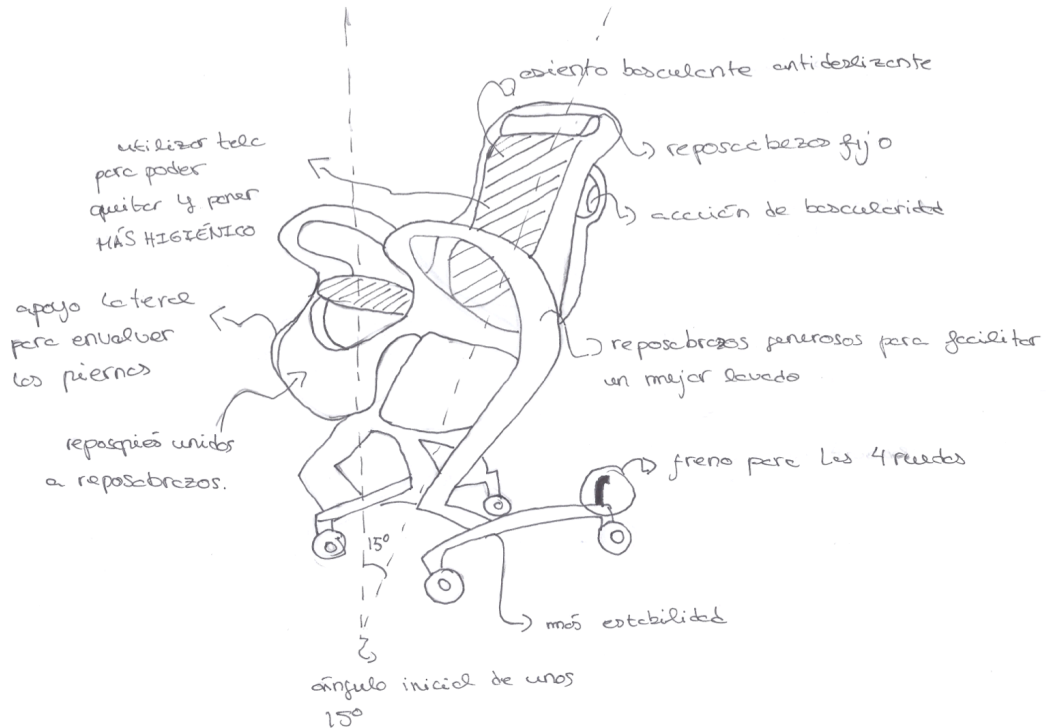 asiento basculante antideslizante
reposacabezas fijo
utilizar tela
para poder
quitar y poner
MÁS HIGIÉNICO
acción de bascularidad
apoyo lateral
para envolver
las piernas
reposabrazos generosos para facilitar
un mejor lavado
reposapiés unidos
a reposabrazos.
freno para las 4 ruedas
15º
más estabilidad
ángulo inicial de unos
15º